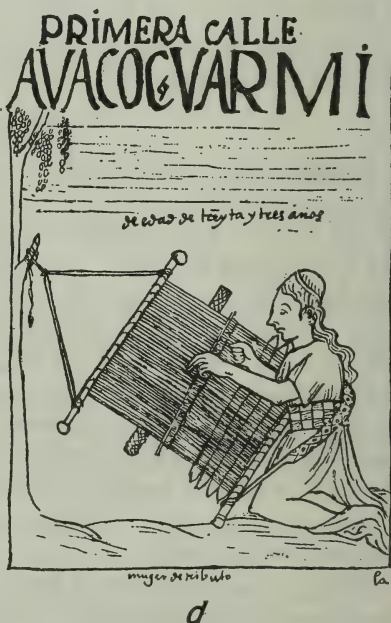 PRIMERA CALLE
AVACOC VARMI
de edad de trẽyta y tres años
muger de tributo la
d